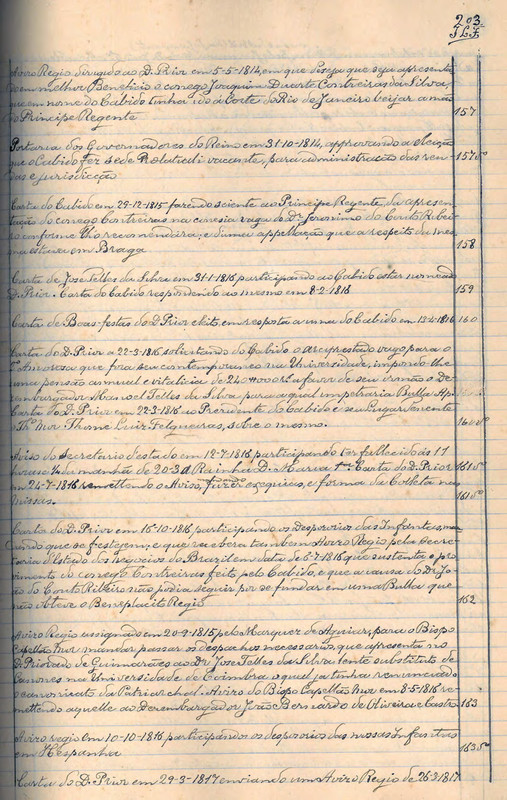 203
Aviso Regio dirigido ao D. Prior em 5-5-1814, em que deseja que seja apresenta
do em melhor Beneficio o conego Joaquim Duarte Contreiras da Silva,
que em nome do Cabido tinha ido á Corte do Rio de Janeiro beijar a mão
ao Principe Regente 157
Portaria dos Governadores do Reino em 31-10-1814, approvando a eleição
que o Cabido fez séde Prelaticia vacante, para administração das ren-
das e jurisdicção 157vº
Carta do Cabido em 29-12-1815 fazendo sciente ao Principe Regente, da apresen-
tação do conego Contreiras na conesia vaga do Dr. Jeronimo do Couto Ribei-
ro conforme lho recommendára; e duma appellação que a respeito da mes-
ma estava em Braga 158
Carta de José Telles da Silva em 31-1-1816 participando ao Cabido estar nomeado
D. Prior. Carta do Cabido respondendo ao mesmo em 8-2-1816 159
Carta de Boas-festas do D. Prior eleito, em resposta a uma do Cabido em 13-4-1816 160
Carta do D. Prior a 22-3-1816 solicitando do Cabido o arciprestado vago para o
Amorosa que fora seu contemporaneo na Universidade, impondo-lhe
uma pensão annual e vitalicia de 240$000 rs. a favor de seu irmão o De-
zembargador Manoel Telles da Silva para a qual impetraria Bulla Ap.
Carta do D. Prior em 22-3-1816 ao Presidente do Cabido e seu Lugar-tenente
Thr. Mor Thomé Luiz Felgueiras, sobre o mesmo. 160vº
Aviso do Secretario d'estado em 12-7-1816 participando ter fallecido ás 11
horas e 1/4 da manhã de 20-3 a Rainha D. Maria 1ª. Carta do D. Prior 161vº
em 24-7-1816 remettendo o Aviso, fazer exequias, e forma da Colleta nas
missas. 161vº
Carta do D. Prior em 16-10-1816 participando os desposorios das Infantas, ma
ndando que se festegem; e que recebera tambem Aviso Regio pela Secre-
taria d'Estado dos Negocios do Brazil em data de 6-7-1816 que sustenta o pro-
vimento do conego Contreiras feito pelo Cabido, e que a causa do Dr. Jo-
ão do Couto Ribeiro não podia seguir por se fundar em uma Bulla que
não obteve o Beneplacito Regio 162
Aviso Regio assignado em 20-9-1815 pelo Marquez de Aguiar, para o Bispo
Capellão Mór mandar passar os despachos necessarios, que apresenta no
D. Priorado de Guimarães ao Dr. José Telles da Silva lente substituto de
canones na Universidade de Coimbra o qual já tinha renunciado
o canonicato da Patriarchal. Aviso do Bispo Capellão Mór em 8-5-1816 re-
mettendo aquelle ao Dezembargador João Bernardo de Oliveira e Castro 163
Aviso regio em 10-10-1816 participando os desposorios das nossas Infantas
em Hespanha 163vº
Carta do D. Prior em 29-3-1817 enviando um Aviso Regio de 26-3-1817